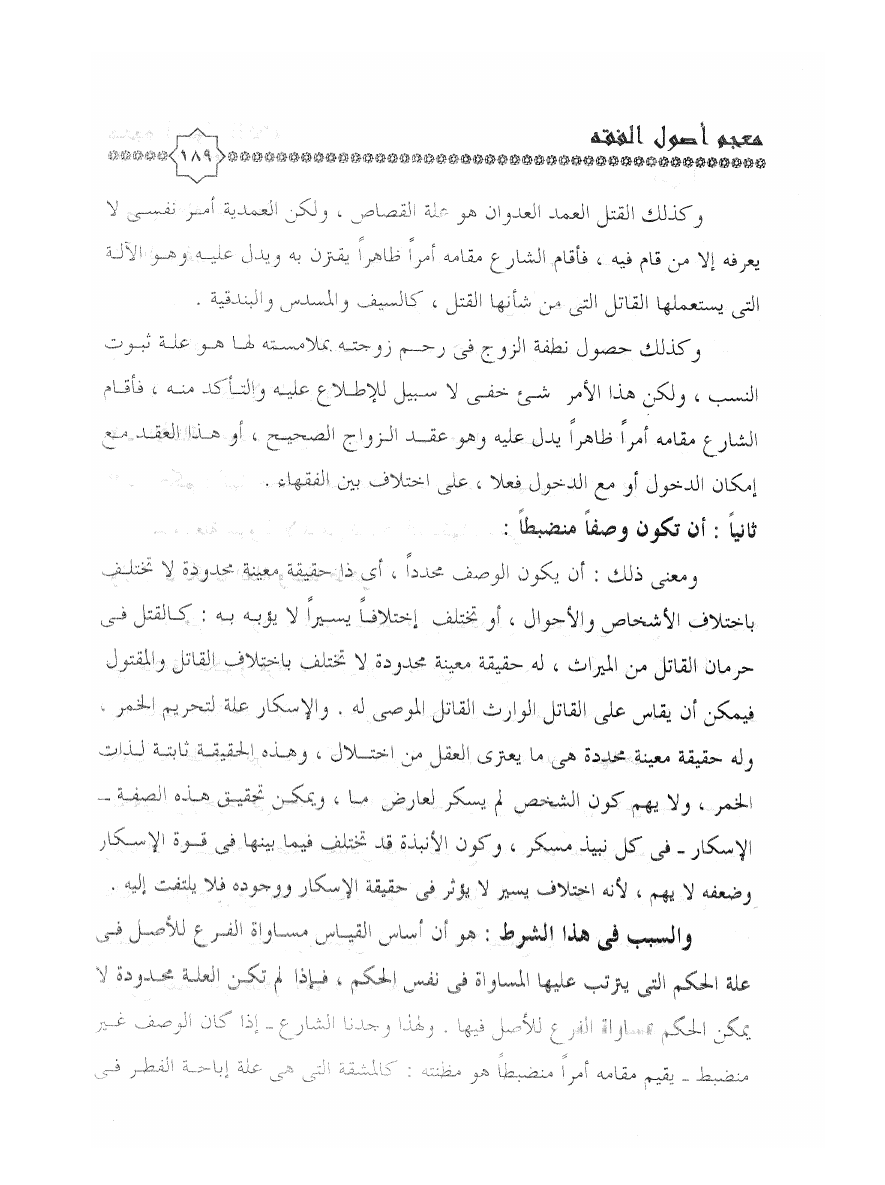 معجم أصول الفقه
١٨٩
وكذلك القتل العمد العدوان هو علة القصاص ، ولكن العمدية أمر نفسى لا
يعرفه إلا من قام فيه ، فأقام الشارع مقامه أمراً ظاهراً يقترن به ويدل عليه وهو الآلة
التى يستعملها القاتل التى من شأنها القتل ، كالسيف والمسدس والبندقية .
وكذلك حصول نطفة الزوج فى رحم زوجته بملامسته لها هو علة ثبوت
النسب ، ولكن هذا الأمر شئ خفى لا سبيل للإطلاع عليه والتأكد منه ، فأقام
الشارع مقامه أمراً ظاهراً يدل عليه وهو عقد الزواج الصحيح ، أو هذا العقد مع
إمكان الدخول أو مع الدخول فعلا ، على اختلاف بين الفقهاء .
ثانياً : أن تكون وصفاً منضبطاً :
ومعنى ذلك : أن يكون الوصف محدداً ، أى ذا حقيقة معينة محدودة لا تختلف
باختلاف الأشخاص والأحوال ، أو تختلف إختلافاً يسيراً لا يؤبه به : كالقتل فى
حرمان القاتل من الميراث ، له حقيقة معينة محدودة لا تختلف باختلاف القاتل والمقتول
فيمكن أن يقاس على القاتل الوارث القاتل الموصى له . والإسكار علة لتحريم الخمر ،
وله حقيقة معينة محددة هى ما يعترى العقل من اختلال ، وهذه الحقيقة ثابتة لذات
الخمر ، ولا يهم كون الشخص لم يسكر لعارض ما ، ويمكن تحقيق هذه الصفة ـ
الإسكار ـ فى كل نبيذ مسكر ، وكون الأنبذة قد تختلف فيما بينها فى قوة الإسكار
وضعفه لا يهم ، لأنه اختلاف يسير لا يؤثر فى حقيقة الإسكار ووجوده فلا يلتفت إليه .
والسبب فى هذا الشرط : هو أن أساس القياس مساواة الفرع للأصل فى
علة الحكم التى يترتب عليها المساواة فى نفس الحكم ، فإذا لم تكن العلة محدودة لا
يمكن الحكم بمساواة الفرع للأصل فيها . ولهذا وجدنا الشارع ـ إذا كان الوصف غير
منضبط ـ يقيم مقامه أمراً منضبطاً هو مظنته : كالمشقة التى هى علة إباحة الفطر فى